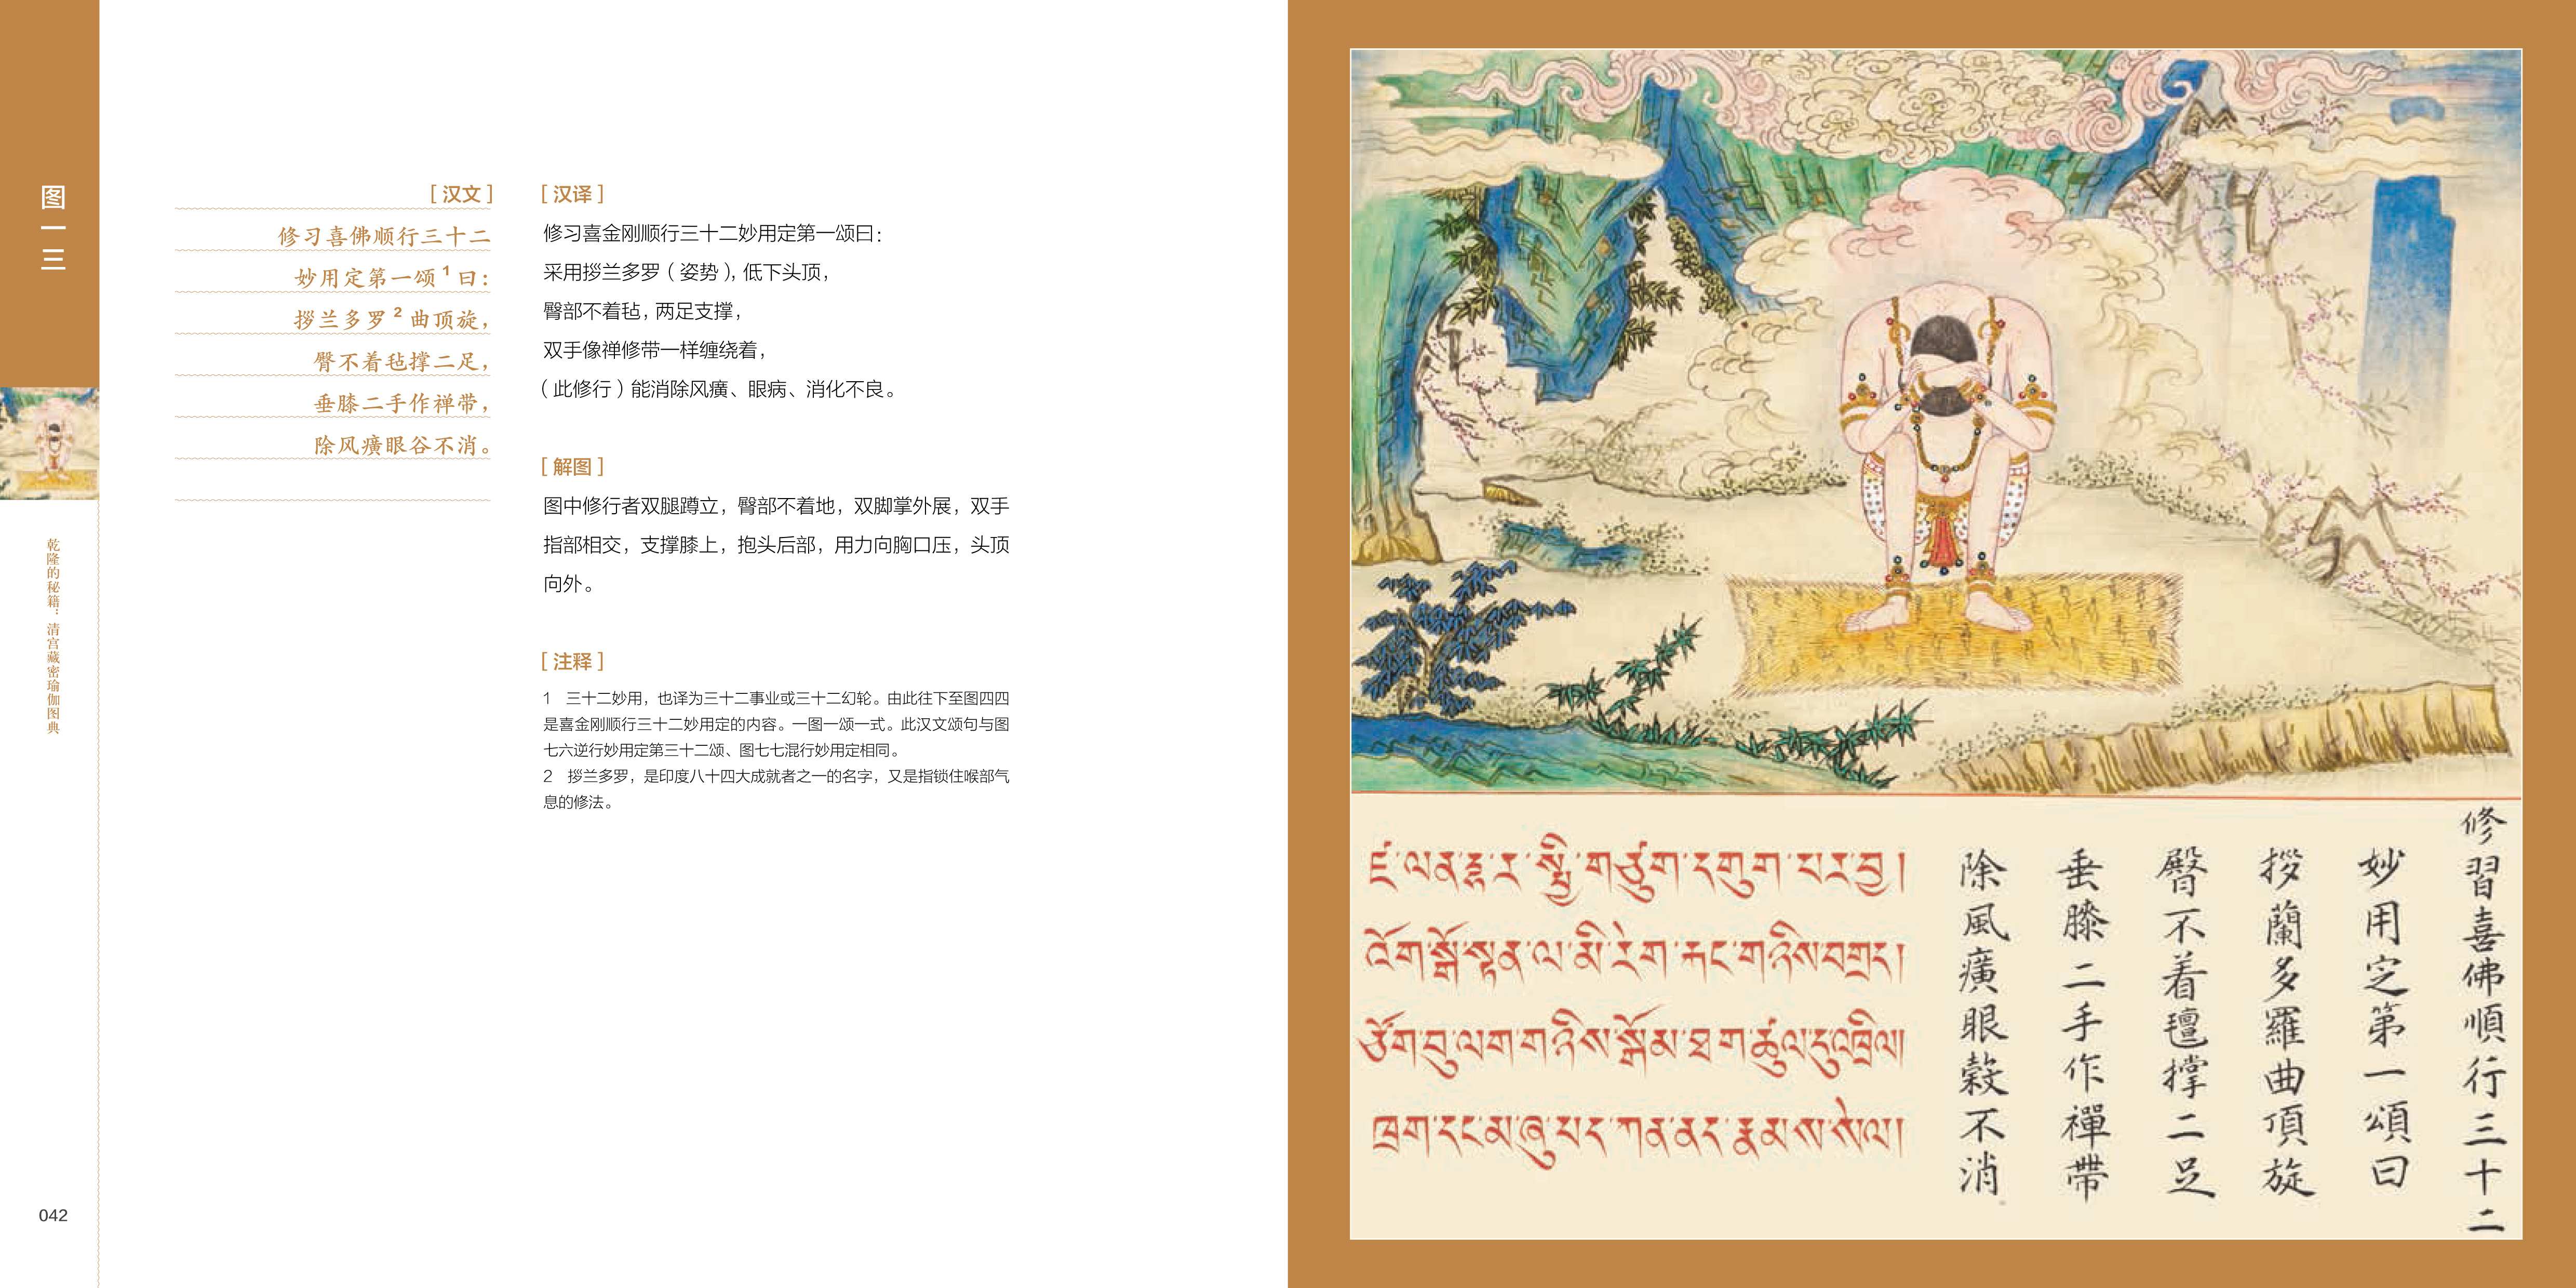 图一三
乾隆的秘籍：清宫藏密瑜伽图典
042
[ 汉文 ]
修习喜佛顺行三十二
妙用定第一颂1曰：
拶兰多罗2曲顶旋，
臀不着毡撑二足，
垂膝二手作禅带，
除风癀眼谷不消。
[ 汉译 ]
修习喜金刚顺行三十二妙用定第一颂曰：
采用拶兰多罗（姿势），低下头顶，
臀部不着毡，两足支撑，
双手像禅修带一样缠绕着，
（此修行）能消除风癀、眼病、消化不良。
[ 解图 ]
图中修行者双腿蹲立，臀部不着地，双脚掌外展，双手
指部相交，支撑膝上，抱头后部，用力向胸口压，头顶
向外。
[ 注释 ]
1 三十二妙用，也译为三十二事业或三十二幻轮。由此往下至图四四
是喜金刚顺行三十二妙用定的内容。一图一颂一式。此汉文颂句与图
七六逆行妙用定第三十二颂、图七七混行妙用定相同。
2 拶兰多罗，是印度八十四大成就者之一的名字，又是指锁住喉部气
息的修法。
修習喜佛順行三十二
妙用定第一頌曰
拶蘭多羅曲頂旋
臀不着氊撑二足
垂膝二手作禪帶
除風癀眼榖不消
ཛཱ་ལནྡྷ་ར་སྤྱི་གཙུག་དགུག་པར་བྱ།
འོག་སྒོ་སྟན་ལ་མི་རེག་རྐང་གཉིས་བགྲད།
ཙོག་བུ་ལག་གཉིས་སྒོམ་ཐག་ཚུལ་དུ་འཁྲིལ།།
ཁྲག་དང་མ་ཞུ་པད་ཀན་ནད་རྣམས་སེལ།